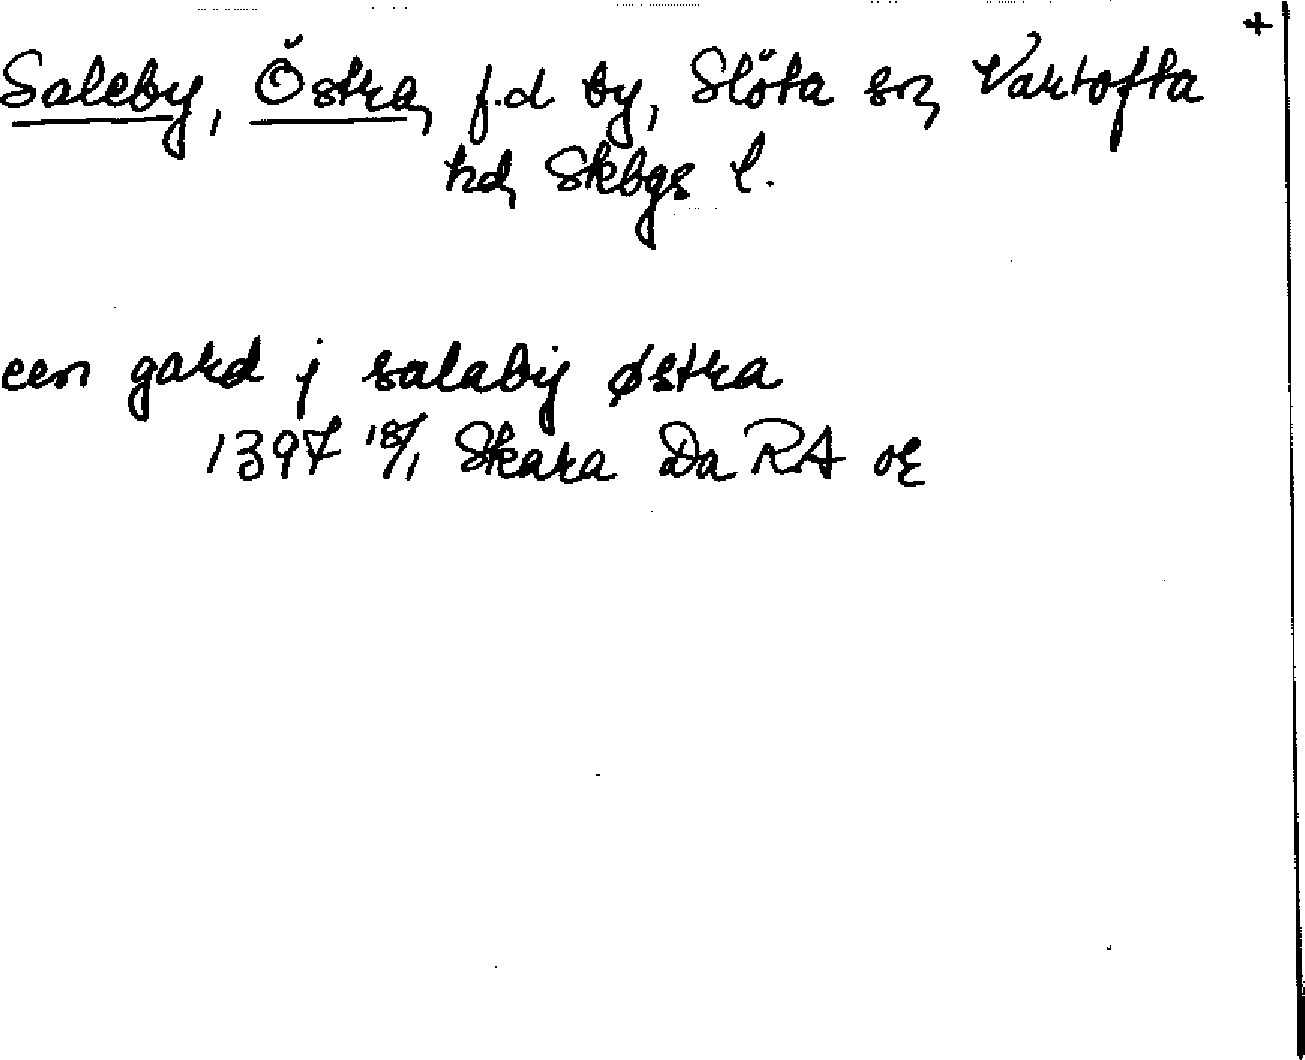 +
Saleby, Östra, f.d by, Slöta sn, Vartofta
hd, Skbgs l.
een gard j salaby østra
1397 18/1 Skara Da RA or